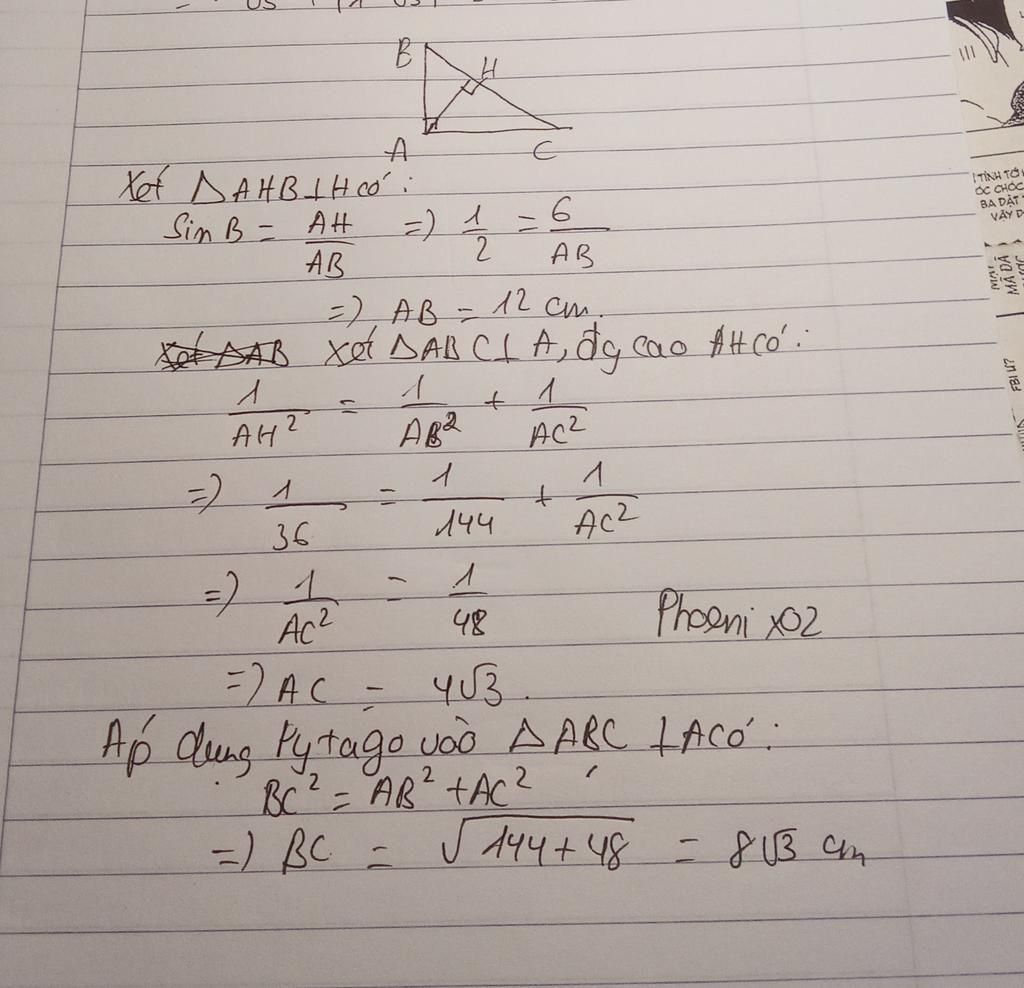 B
H
A
C
Xét ΔAHB⊥H có:
Sin B = AH/AB => 1/2 = 6/AB
=> AB = 12 cm.
Xét ΔABC⊥A, đg cao AH có:
1/AH² = 1/AB² + 1/AC²
=> 1/36 = 1/144 + 1/AC²
=> 1/AC² = 1/48
Phoenix02
=> AC = 4√3.
Áp dụng Pytago vào ΔABC ⊥A có:
BC² = AB² + AC²
=> BC = √144+48 = 8√3 cm
I TÍNH TỚ
ÓC CHÓC
BA DẶT
VẬY
MÃ ĐÁ
FBI Ư?